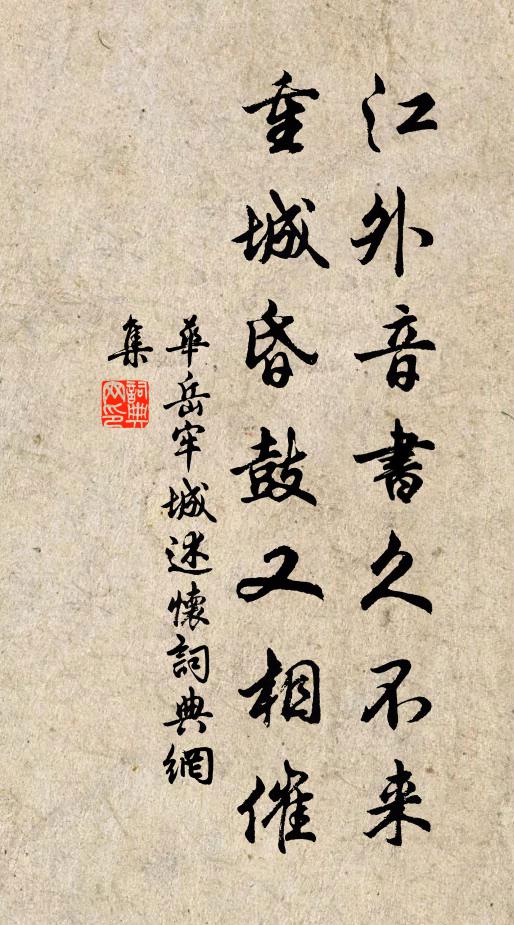 江外音書久不来
重城昏鼓又相催
華岳牢城述懷詞典網
集
詞典網印